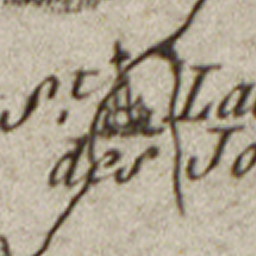 S.t La
des Jo